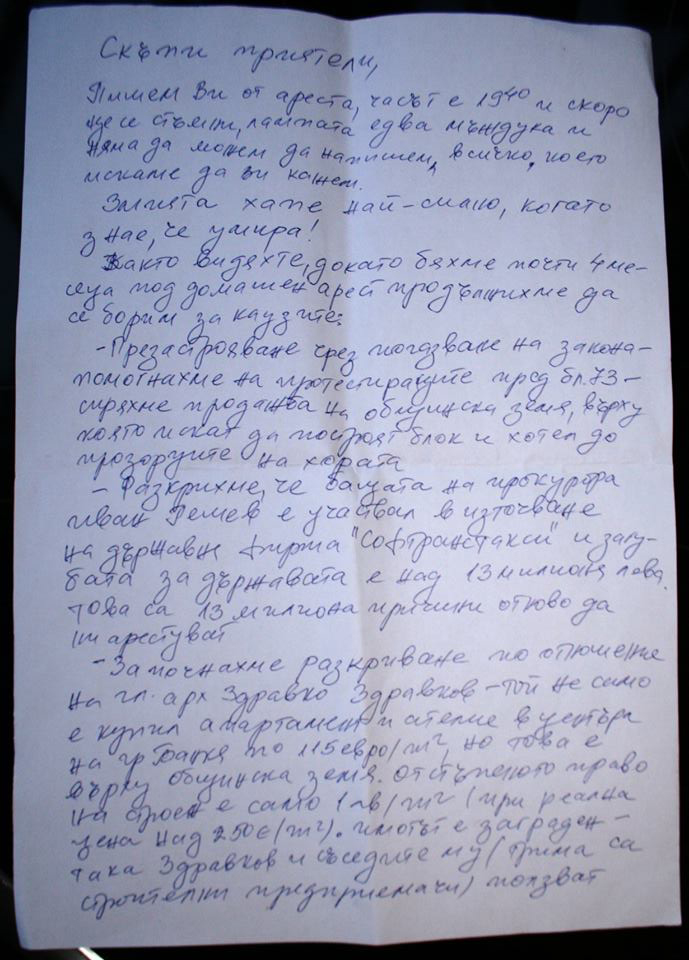 Скъпи приятели,
Пишем Ви от ареста, часът е 19⁴⁰ и скоро
ще се стъмни, лампата едва мъждука и
няма да можем да напишем, всичко, което
искаме да ви кажем.
Змията хапе най-силно, когато
знае, че умира!
Както видяхте, докато бяхме почти 4 ме-
сеца под домашен арест продължихме да
се борим за каузите:
- Презастрояване чрез погазване на закона -
помогнахме на протестиращите пред бл. 73 -
спряхме продажба на общинска земя, върху
която искат да построят блок и хотел до
прозорците на хората
- Разкрихме, че бащата на прокурора
Иван е участвал в източване
на държавна фирма "Софтранстакси" и загу-
бата за държавата е над 13 милиона лева.
Това са 13 милиона причини отново да
ни арестуват
- Започнахме разкриване по отношение
на гл. арх Здравко Здравков - той не само
е купил апартамент и ателие в центъра
на гр Банкя по 115 евро/m², но това е
върху общинска земя. Отстъпеното право
на строеж е само 1 лв/m² (при реална
цена над 250 €/m²). Имотът е заграден -
така Здравков и съседите му (трима са
строителни предприемачи) ползват